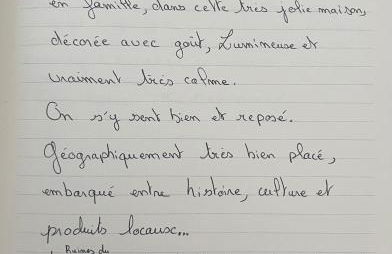 en famille, dans cette très jolie maison,
décorée avec goût, Lumineuse et
vraiment très calme.
On s'y sent bien et reposé.
Géographiquement très bien placé,
embarqué entre histoire, culture et
produits locaux...
Ruines du